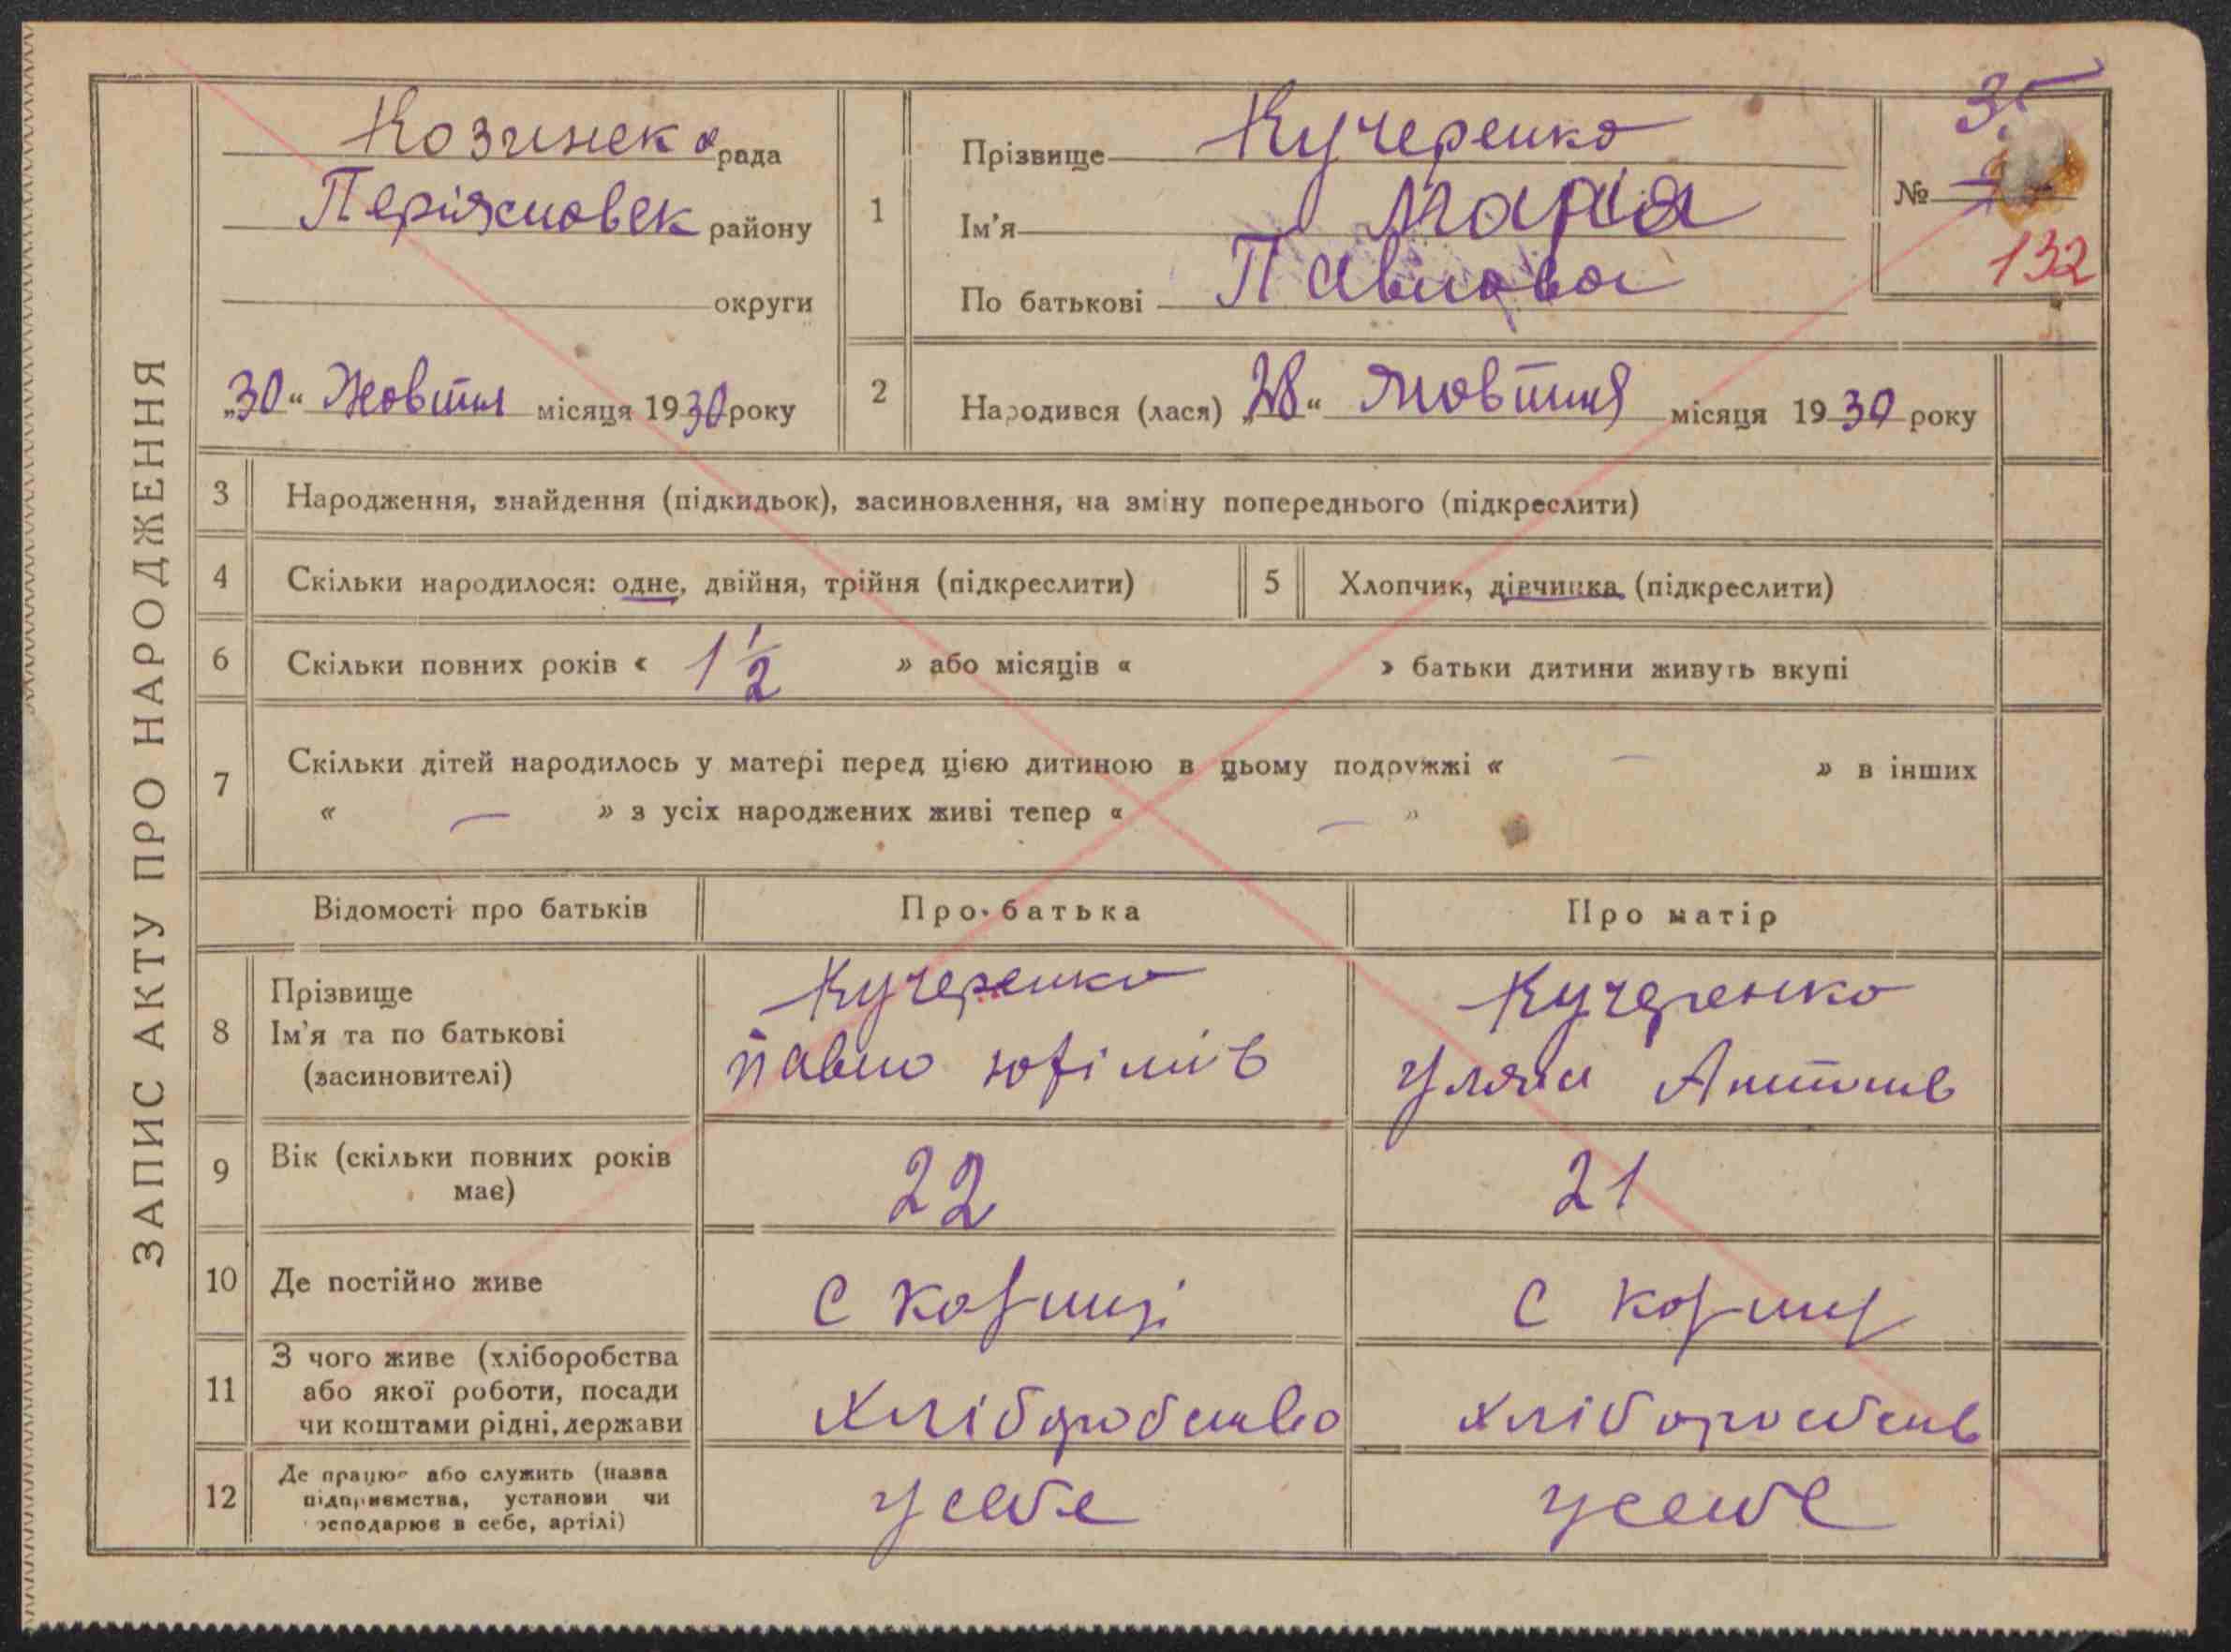 ЗАПИС АКТУ ПРО НАРОДЖЕННЯ
Козинск а рада
району
округи
„30“ Жовтня місяця 1930 року
1
Прізвище Кучеренко
Ім'я Марія
По батькові Павловна
35
№
132
2
Народився (лася) „28“ Жовтня місяця 1930 року
3 Народження, знайдення (підкидьок), засиновлення, на зміну попереднього (підкреслити)
4 Скільки народилося: одне, двійня, трійня (підкреслити)
5 Хлопчик, дівчинка (підкреслити)
6 Скільки повних років « 1 1/2 » або місяців « » батьки дитини живуть вкупі
7 Скільки дітей народилось у матері перед цією дитиною в цьому подружжі « — » в інших
« — » з усіх народжених живі тепер « — »
Відомості про батьків
Про батька
Про матір
8
Прізвище
Ім'я та по батькові
(засиновителі)
Кучеренко
Павло Юфімів
Кучеренко
Уляна Антонів
9
Вік (скільки повних років
має)
22
21
10 Де постійно живе
с
с
11
З чого живе (хліборобства
або якої роботи, посади
чи коштами рідні, держави
хліборобство
хлібороб
12
Де працює або служить (назва
підприємства, установи чи
господарює в себе, артілі)
у себе
у себе